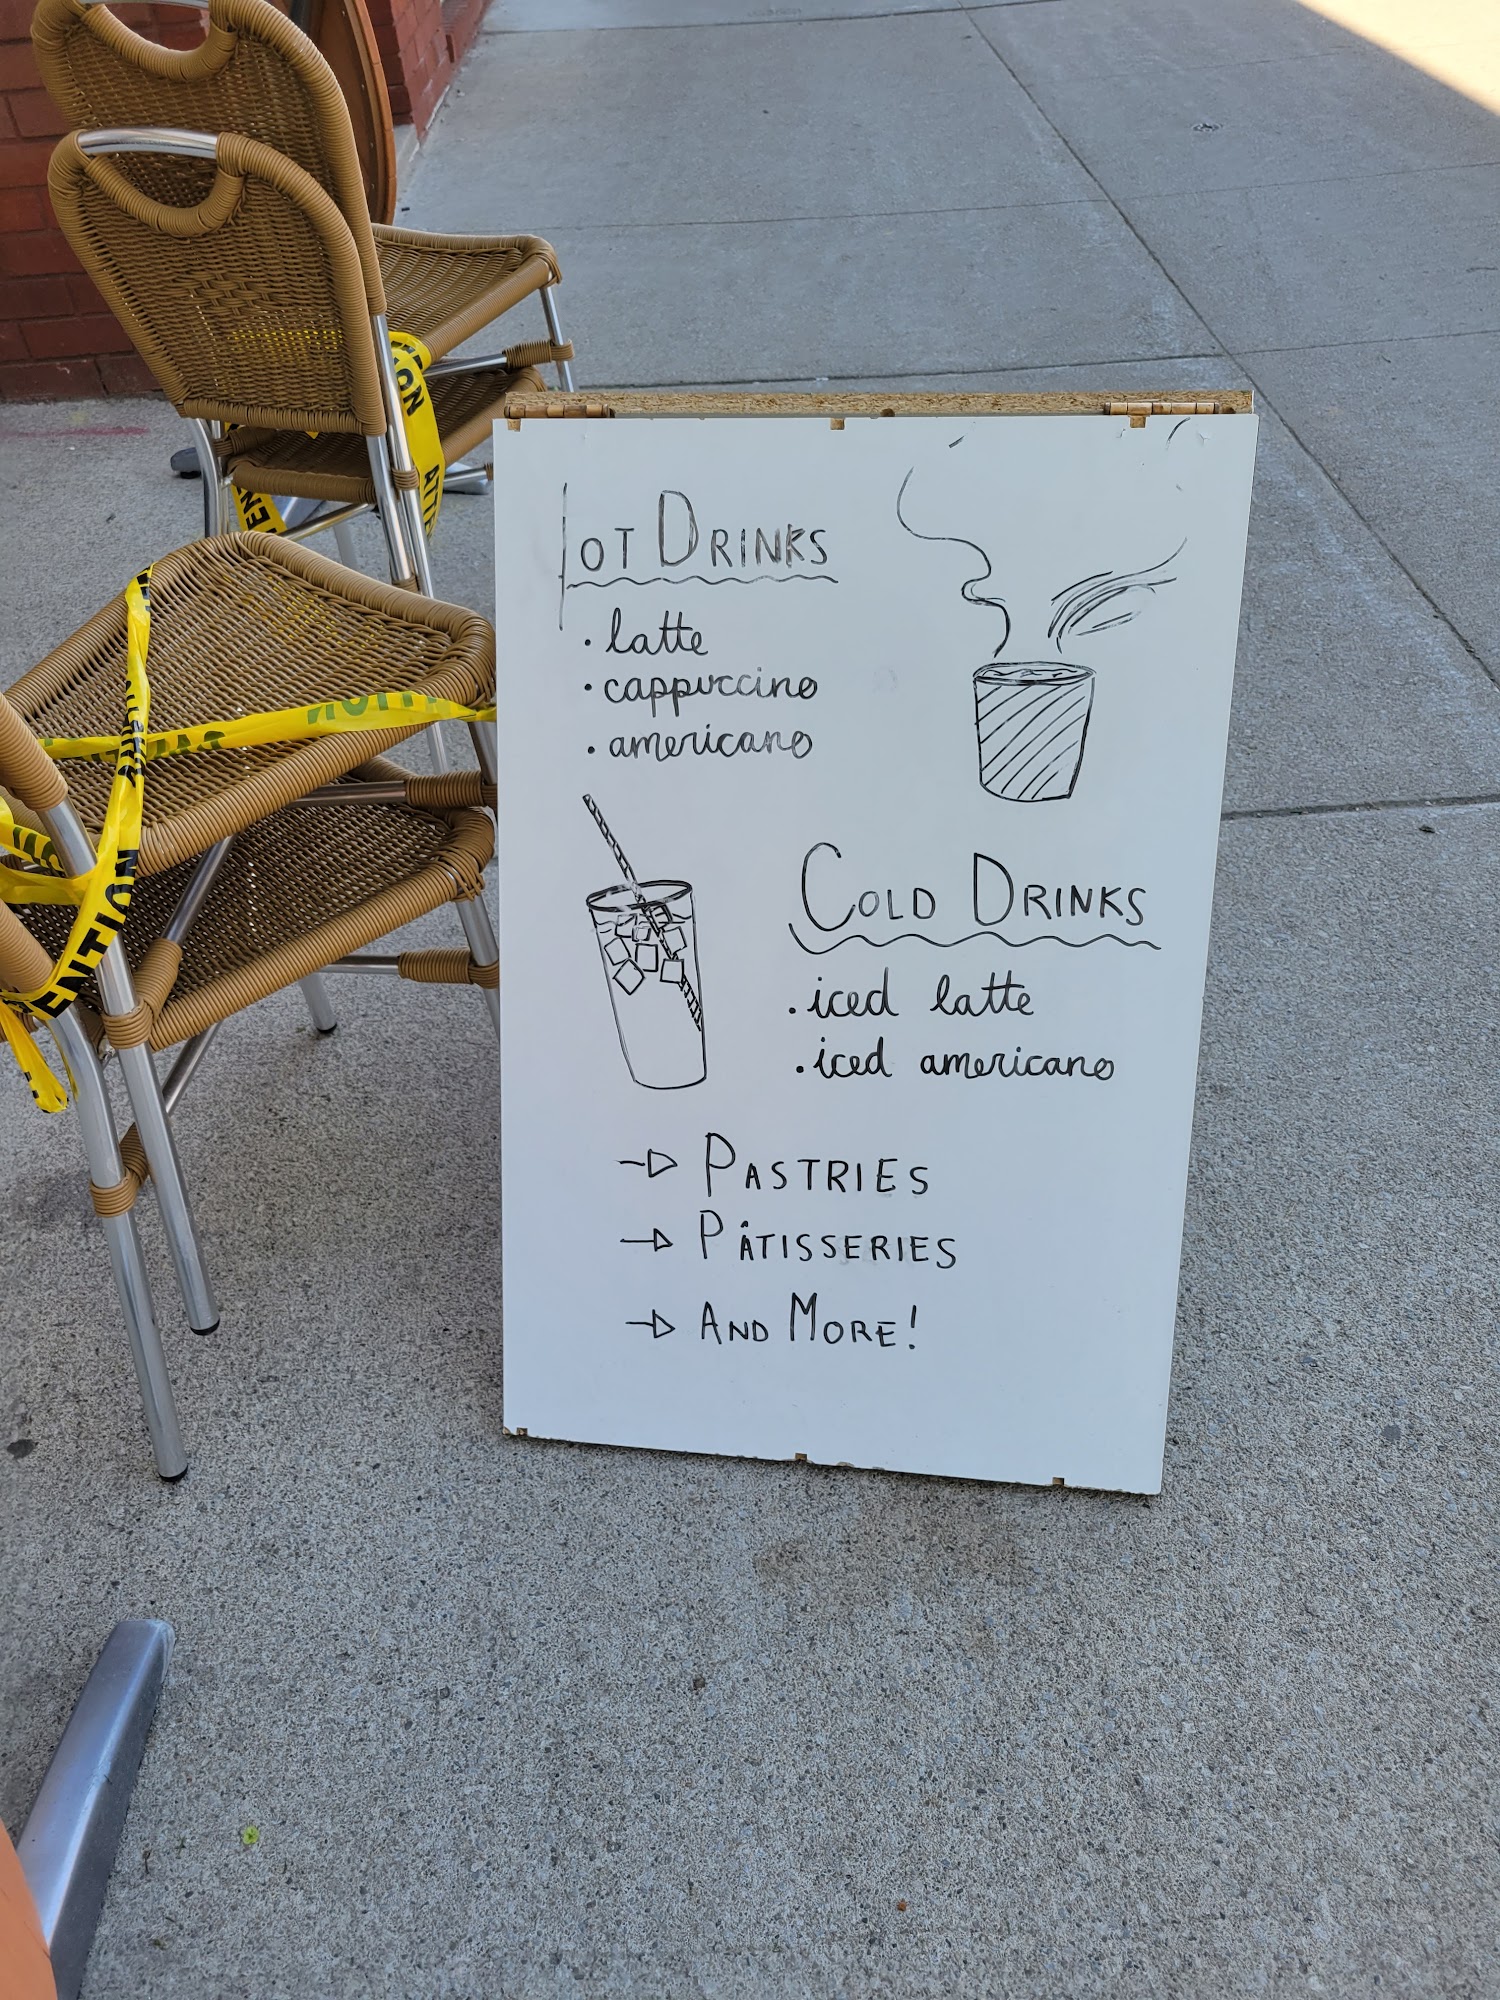 HOT DRINKS
· latte
· cappuccino
· americano
COLD DRINKS
· iced latte
· iced americano
→ PASTRIES
→ PÂTISSERIES
→ AND MORE!
ATTENTION
ATTENTION